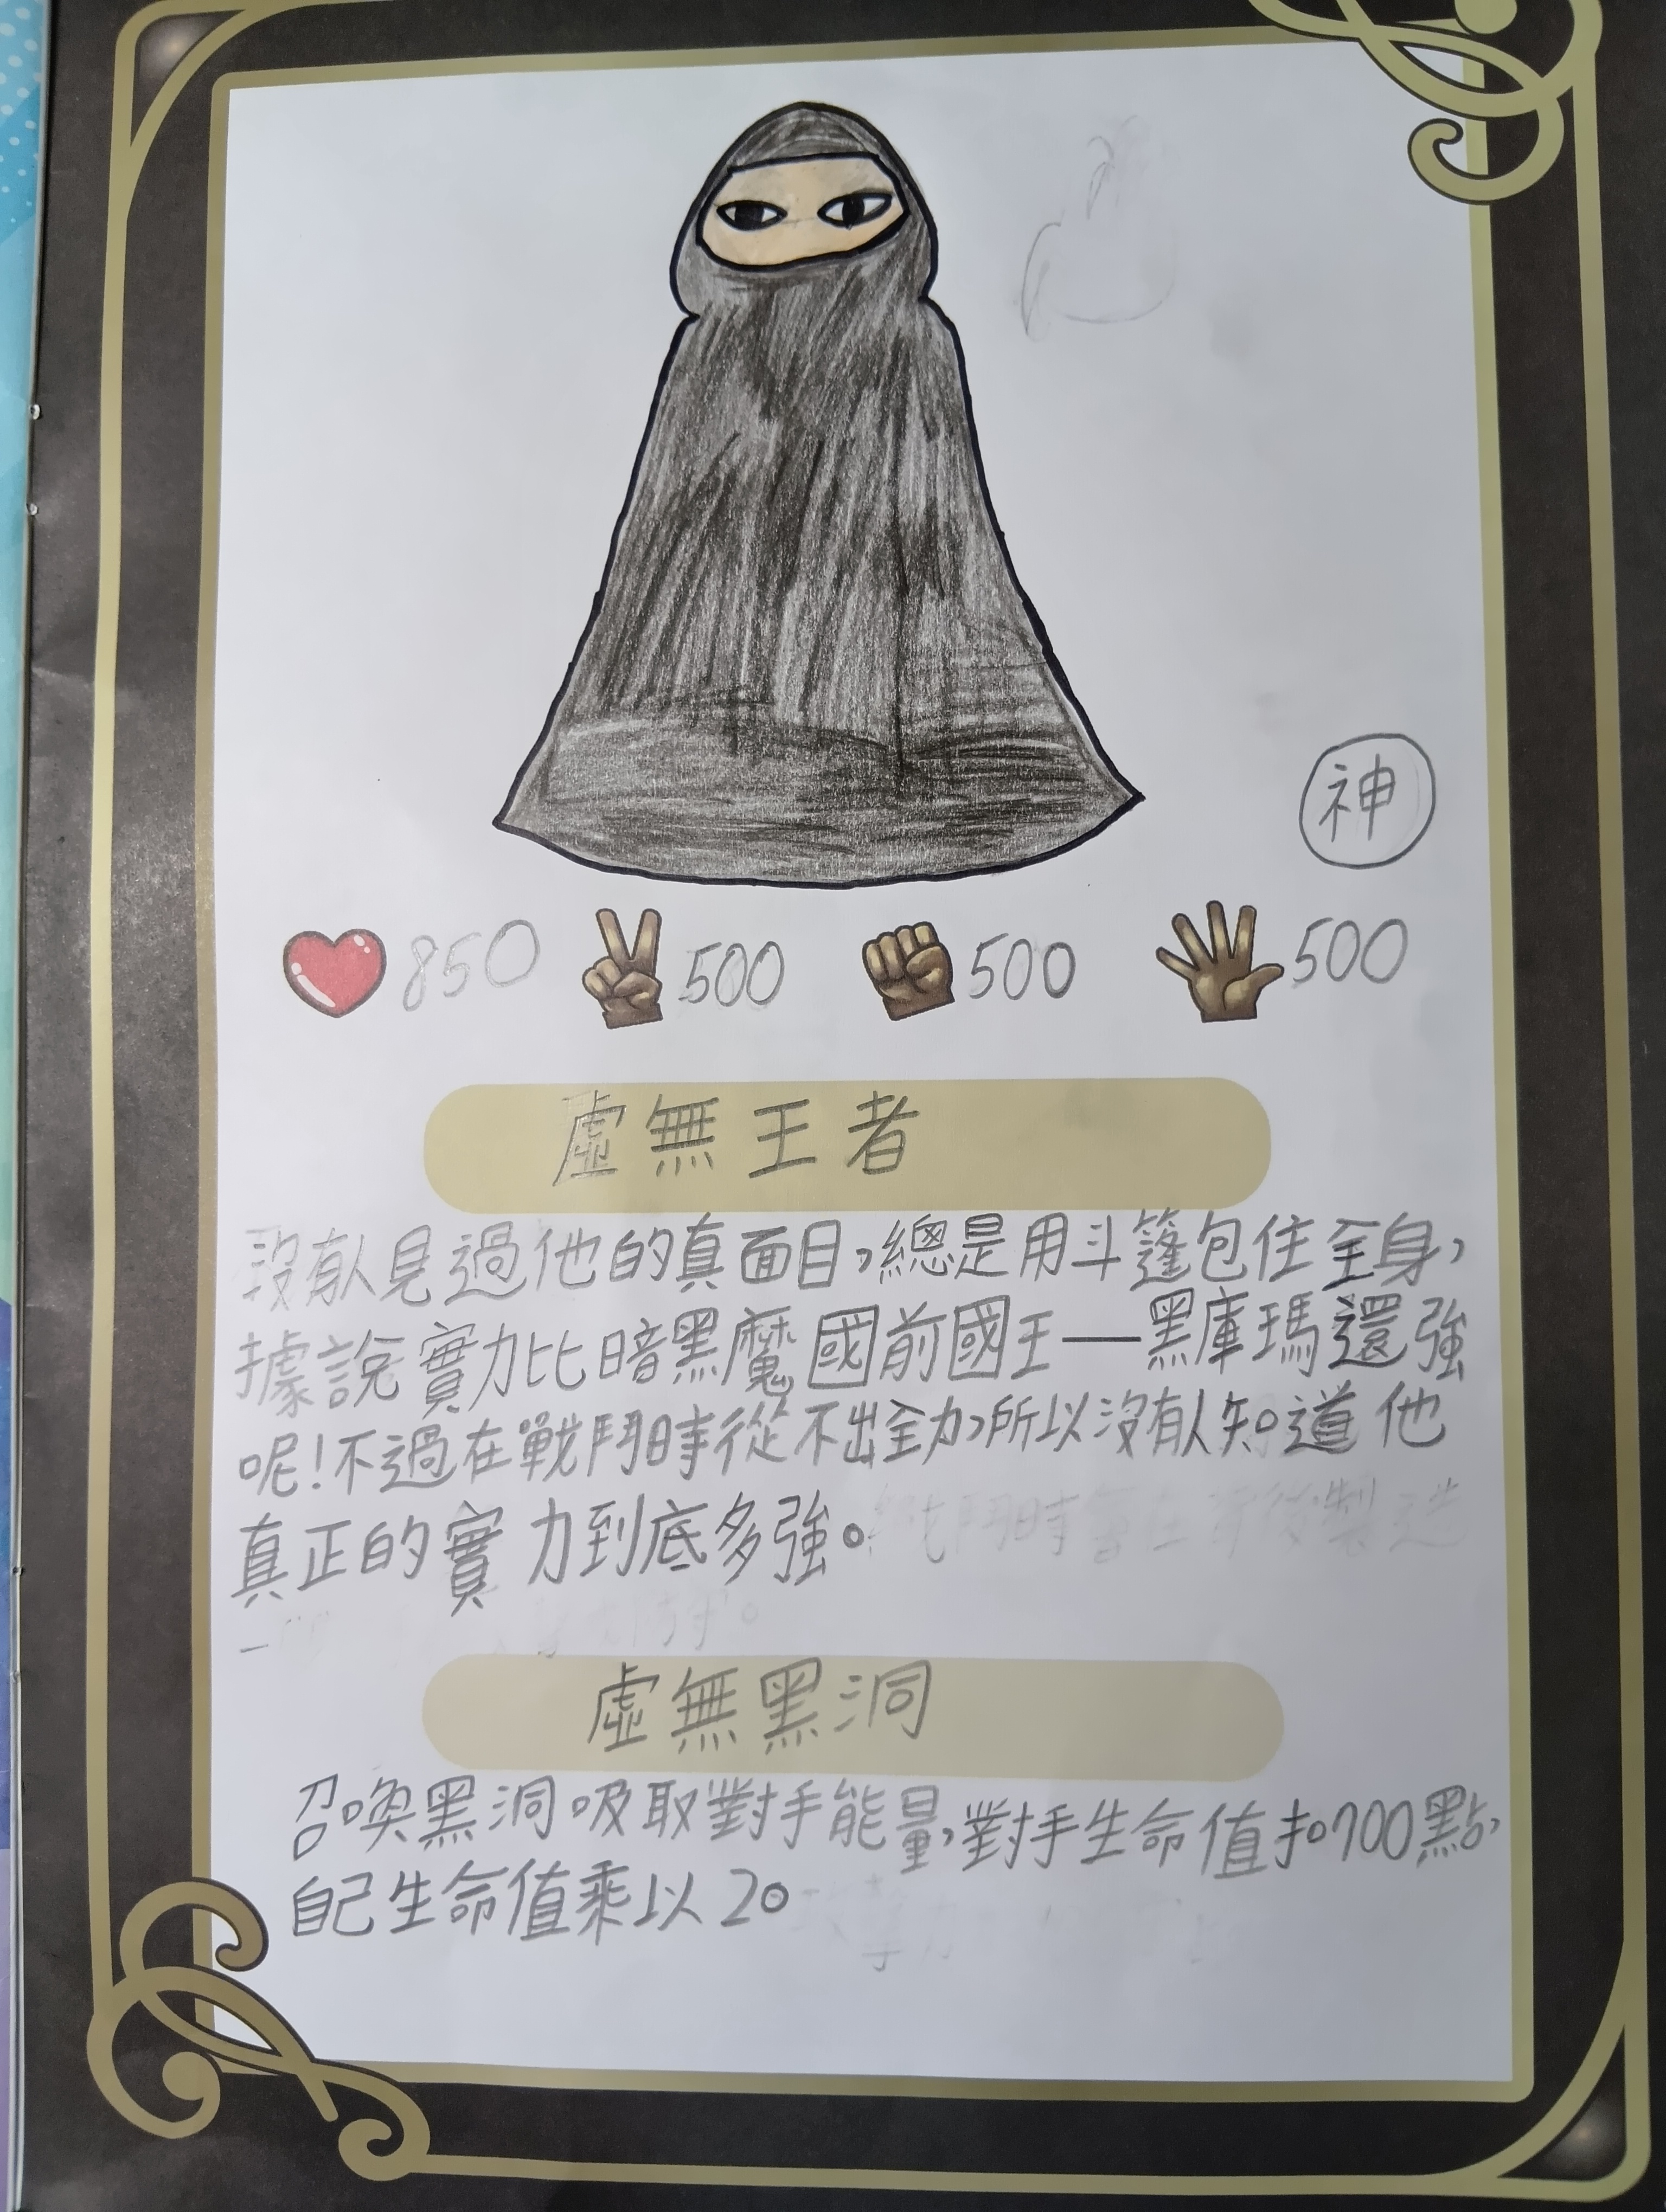 神
850 500 500 500
虛無王者
沒有人見過他的真面目,總是用斗篷包住全身,
據說實力比暗黑魔國前國王——黑庫瑪還強
呢!不過在戰鬥時從不出全力,所以沒有人知道他
真正的實力到底多強。
虛無黑洞
召喚黑洞吸取對手能量,對手生命值扣700點,
自己生命值乘以2。